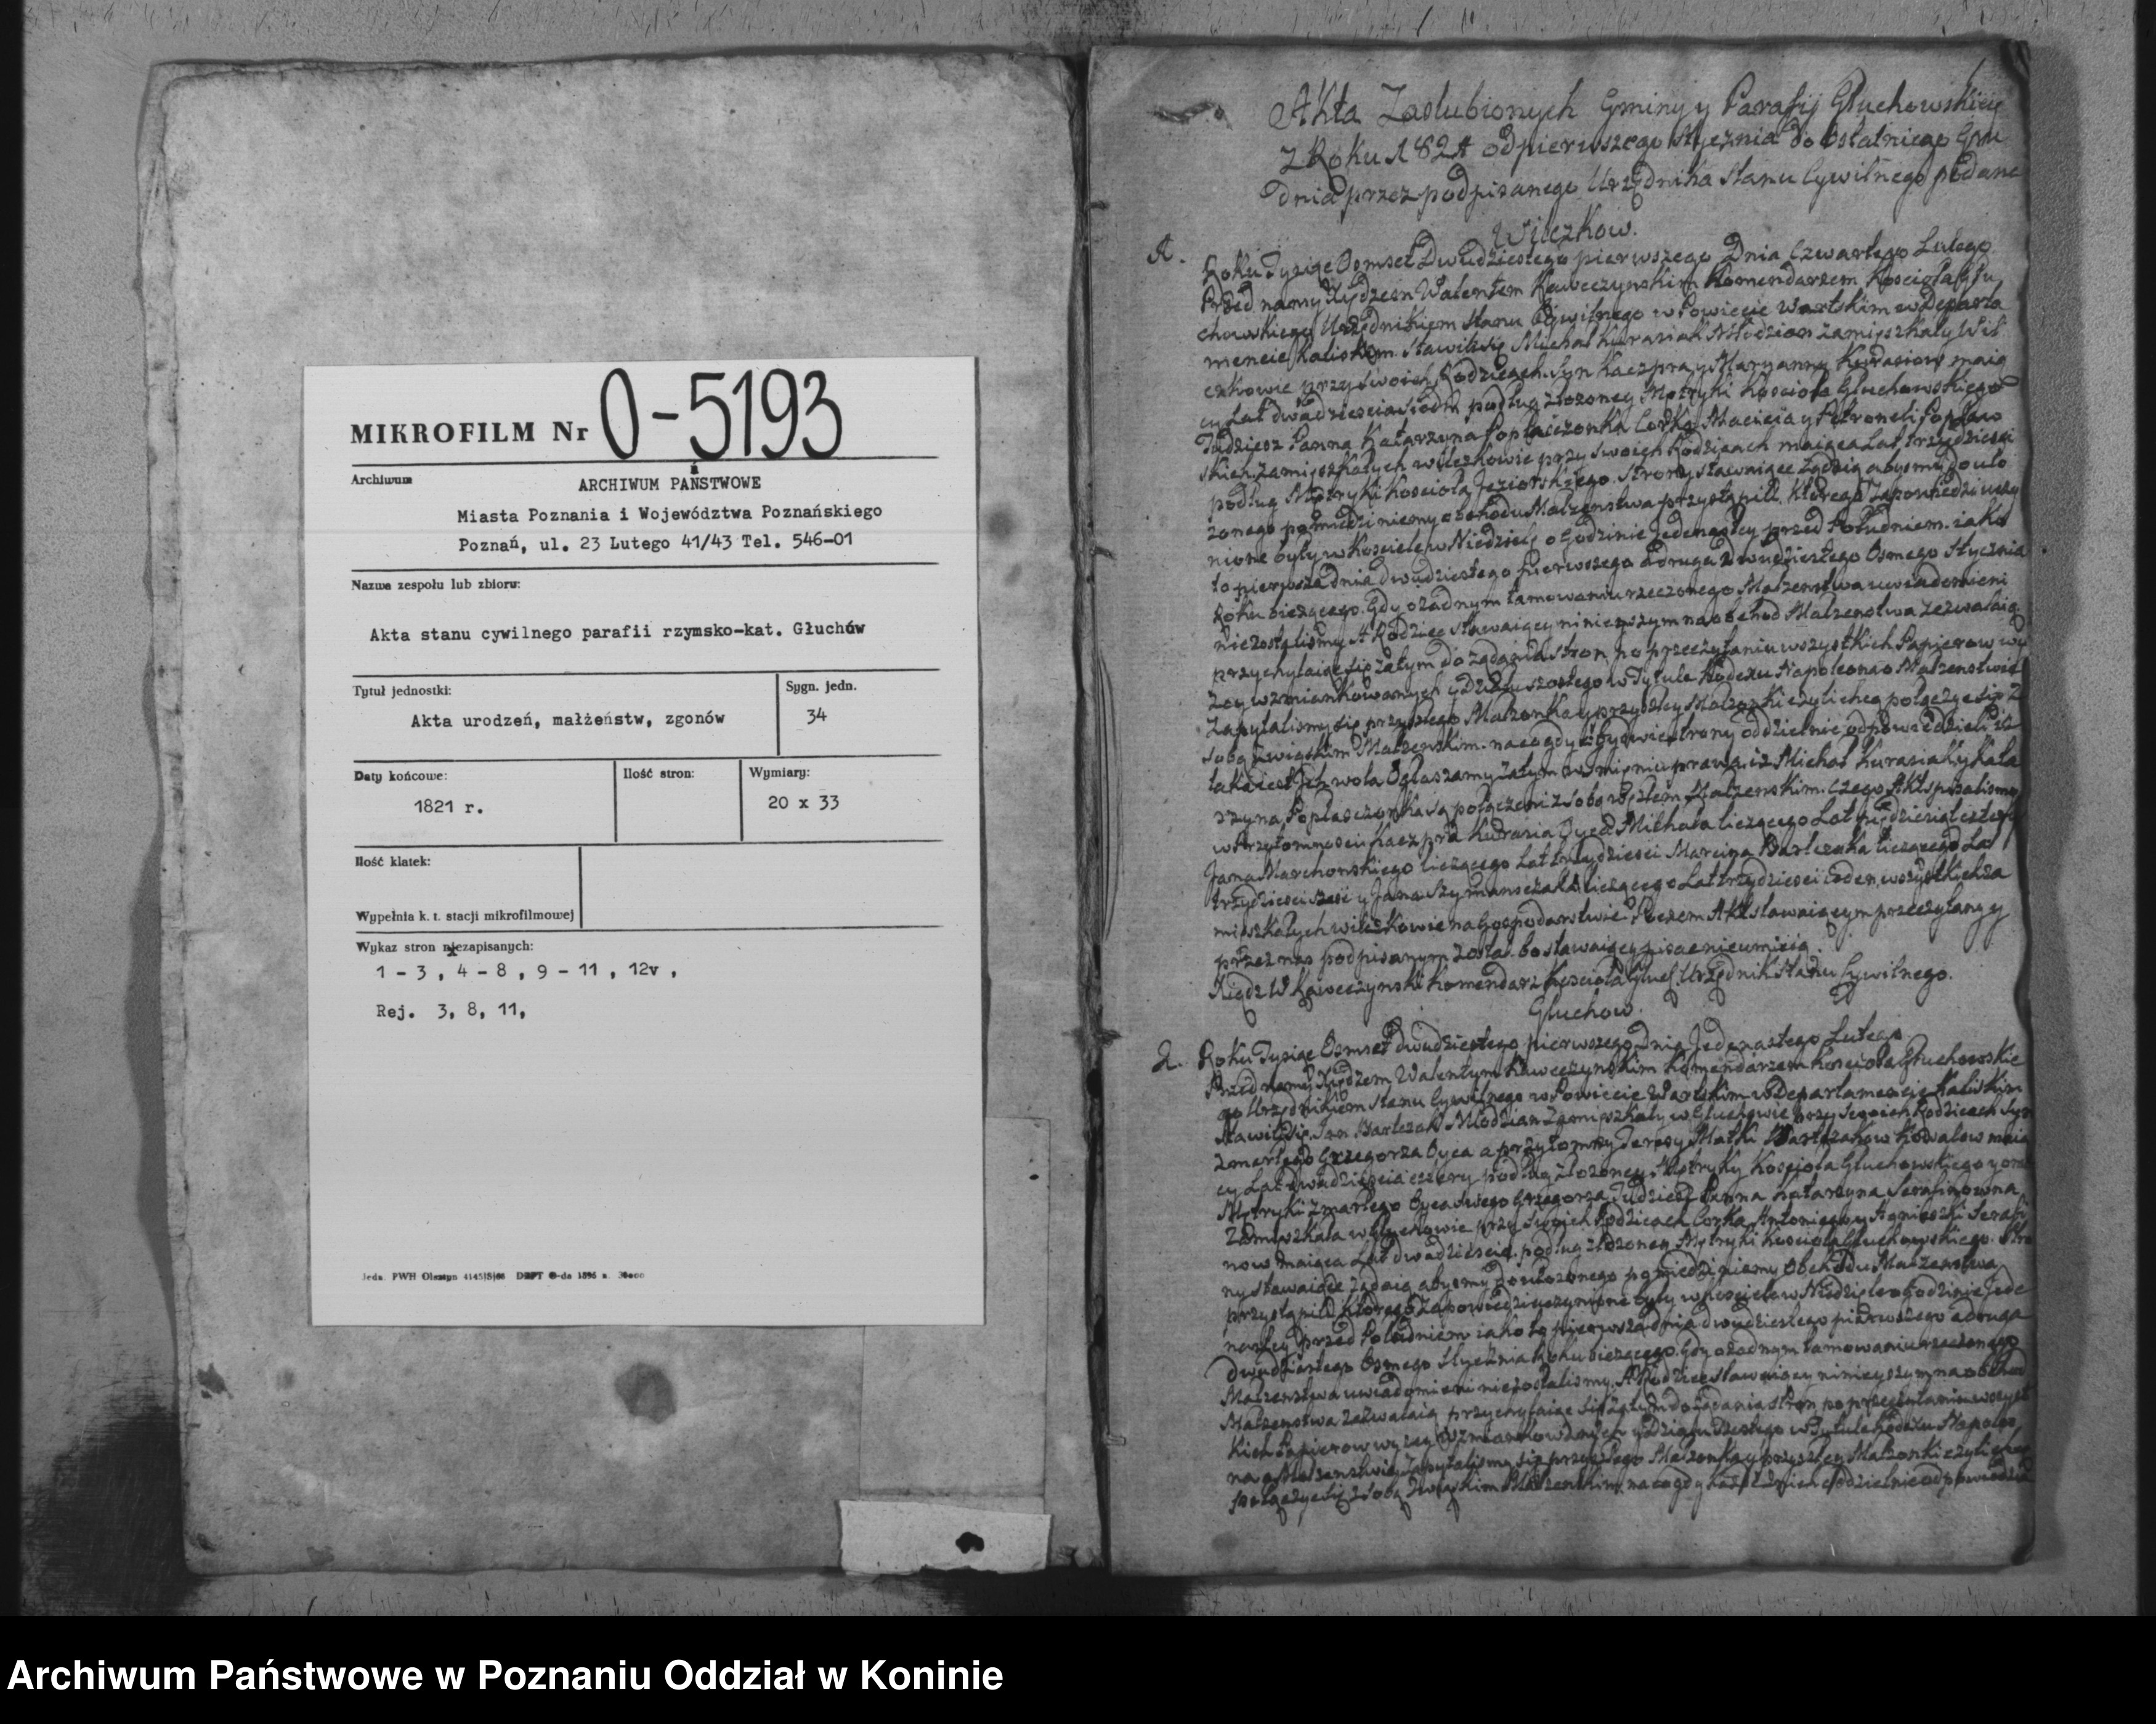 MIKROFILM Nr 0-5193
Archiwum
ARCHIWUM PAŃSTWOWE
Miasta Poznania i Województwa Poznańskiego
Poznań, ul. 23 Lutego 41/43 Tel. 546-01
Nazwa zespołu lub zbioru:
Akta stanu cywilnego parafii rzymsko-kat. Głuchów
Tytuł jednostki:
Sygn. jedn.
Akta urodzeń, małżeństw, zgonów
34
Daty końcowe:
Ilość stron:
Wymiary:
1821 r.
20 x 33
Ilość klatek:
Wypełnia k. t. stacji mikrofilmowej
Wykaz stron niezapisanych:
1 - 3 , 4 - 8 , 9 - 11 , 12v ,
Rej. 3, 8, 11,
Akta Zaslubionych Gminy y Parafij Głuchowskiey
Z Roku 1821 od pierwszego stycznia do Ostatniego Gru
dnia przez podpisanego Urzędnika Stanu Cywilnego podane
Wilczkow.
1.
Roku Tysiąc Osmset Dwudziestego pierwszego Dnia Czwartego Lutego
Przed namy Xiędzem Walentem Kawczynskim Komendarzem Kosciola Głu
chowskiego Urzędnikiem Stanu Cywilnego w Powiecie Wartskim w Departa
mencie Kaliskim. Stawił się Michał Kurasiak Młodzian zamięszkały Wil
czkowie przy swoich Rodzicach. Syn Kaczpra y Maryanny Kurasiow maią
cy Lat dwadziescia siedm podług złozoney Metryki Kosciola Głuchowskiego
Tudziesz Panna Katarzyna Corka Macieia y Petroneli
skich zamięszkałych w Wilczkowie przy swoich Rodzicach maiąca Lat trzydziesci
podług Metryki Kosciola Jeziorskiego. Strony stawaiące ządaią abysmy do uło
zonego pomiędzi niemy obchodu Malzenstwa przystąpili, którego Zapowiedzi uczy
nione były w Kosciele w Niedzielę o Godzinie Jedenastey przed Południem. iako
to pierwsza dnia dwudziestego pierwszego a druga dwudziestego Osmego Stycznia
Roku biezącego. Gdy o zadnym tamowaniu rzeczonego Malzenstwa uwiadomieni
niezostalismy A Rodzice stawaiący ninieyszym na obchod Malzenstwa zezwalaią
przychylaiąc się zatym do ządania stron po przeczytaniu wszystkich Papierow wy
zey wzmiankowanych y Działu szostego w Tytule Kodexu Napoleona o Malzenstwie
Zapytalismy się przyszłego Malzonka y przyszłey Malzonki czyli chcą połączyc się z
sobą związkim Malzenskim. na co gdy obydwie strony oddzielnie odpowiedzieli isz
taka iest Jch wola Ogłaszamy zatym w Imieniu prawa, iż Michał Kurasiak y Kata
rzyna są połączeni z sobą węzłem Malzenskim. Czego Akt spisalismy
w Przytomnosci Kaczpra Kurasia Oyca Michała liczącego Lat pięcdziesiąt cztery
Jana Marchonskiego liczącego Lat trzydziesci Marcina Bartczaka liczącego La
trzydziesci szesć y Jana Szymanszczaka liczącego Lat trzydziesci ieden, wszystkich za
mieszkałych w Wilczkowie na Gospodarstwie, Poczem Akt stawaiącym przeczytany y
przez nas podpisanym został. bo stawaiący pisac nieumieią.
Xiądz W Kawczynski Komendarz Kosciola Głuch. Urzędnik Stanu Cywilnego.
Głuchow.
2.
Roku Tysiąc Osmset dwudziestego pierwszego Dnia Jedenastego Lutego
Przed namy Xiędzem Walentym Kawczynskim Komendarzem Kosciola Głuchowskie
go Urzędnikiem Stanu Cywilnego w Powiecie Wartskim w Departamencie Kaliskim
Stawił się Jan Bartczak Młodzian zamięszkały w Głuchowie przy swoich Rodzicach Syn
zmarłego Grzegorza Oyca a przytomny Teresy Matki Bartczakow Kowalow maią
cy Lat dwadziescia cztery podług złozoney Metryky Kosciola Głuchowskiego y oraz
Metryki zmarłego Oyca swego Grzegorza, Tudziesz Panna Katarzyna Serafinowna
Zamieszkała w Głuchowie przy swoich Rodzicach Corka Antoniego y Agnieszki Serafi
now maiąca Lat dwadziescia. podług złozoney Metryki Kosciola Głuchowskiego. Stro
ny stawaiące ządaią abysmy do ułozonego pomiędzi niemy Obchodu Malzenstwa
przystąpili, którego Zapowiedzi uczynione były w Kosciele w Niedzielę o Godzinie Jede
nastey przed Południem iako to pierwsza dnia dwudziestego pierwszego a druga
dwudziestego Osmego Stycznia Roku biezącego. Gdy o zadnym tamowaniu rzeczonego
Malzenstwa uwiadomieni niezostalismy, A Rodzice stawaiący ninieyszym na obchod
Malzenstwa zezwalaią przychylaiąc się zatym do ządania stron po przeczytaniu wszyst
kich Papierow wyzey wzmiankowanych y działu szostego w Tytule Kodexu Napoleo
na o Malzenstwie Zapytalismy się przyszłego Malzonka y przyszłey Malzonki czyli chcą
połączyc się z sobą związkim Malzenskim, na co gdy kazde z nich oddzielnie odpowiedzia
Archiwum Państwowe w Poznaniu Oddział w Koninie